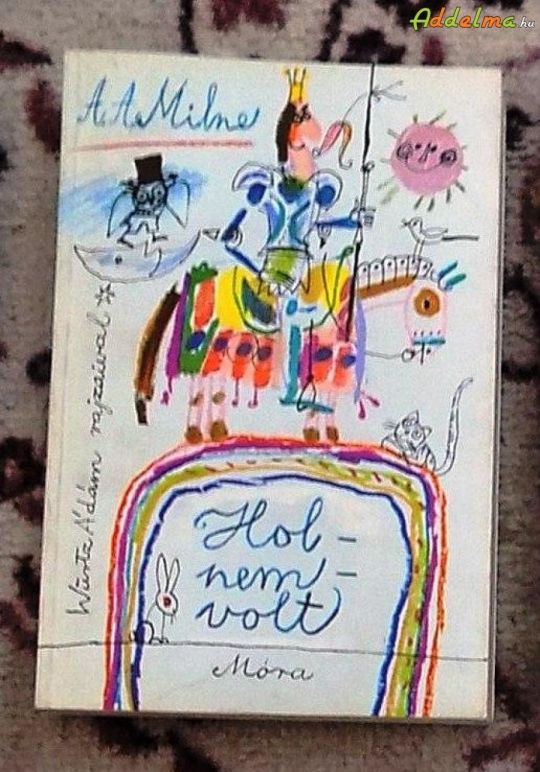 Addelma.hu
A. A. Milne
Würtz Ádám rajzaival
Hol-
nem-
volt
Móra